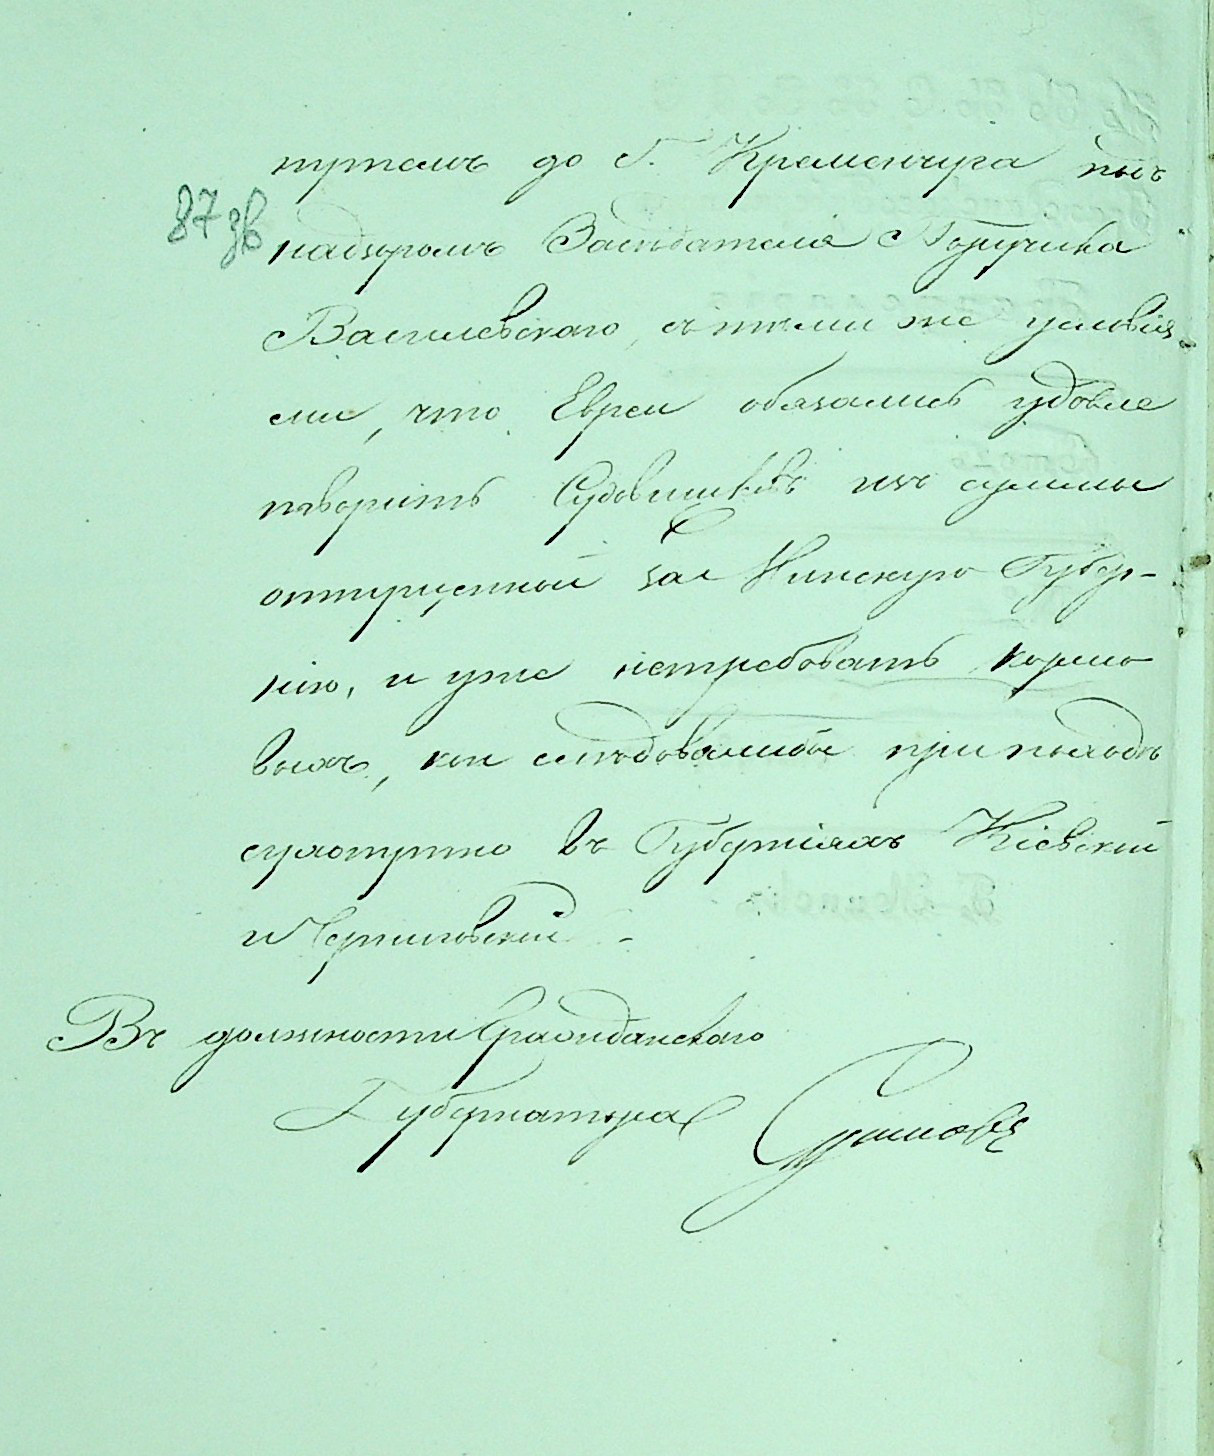 путемъ до г. Кременчуга подъ
87 зв
надзоромъ Засѣдателя Поручика
Василевскаго, съ тѣми же условія-
ми, что Евреи обязались удовле
творить Судовщиковъ изъ суммы
отпущенной за Минскую Губер-
нію, и уже нетребовать кормо
выхъ, кои слѣдовалибы при походѣ
сухопутно въ Губерніяхъ Кіевской
и Черниговской. -
Въ должности Гражданскаго
Губернатора